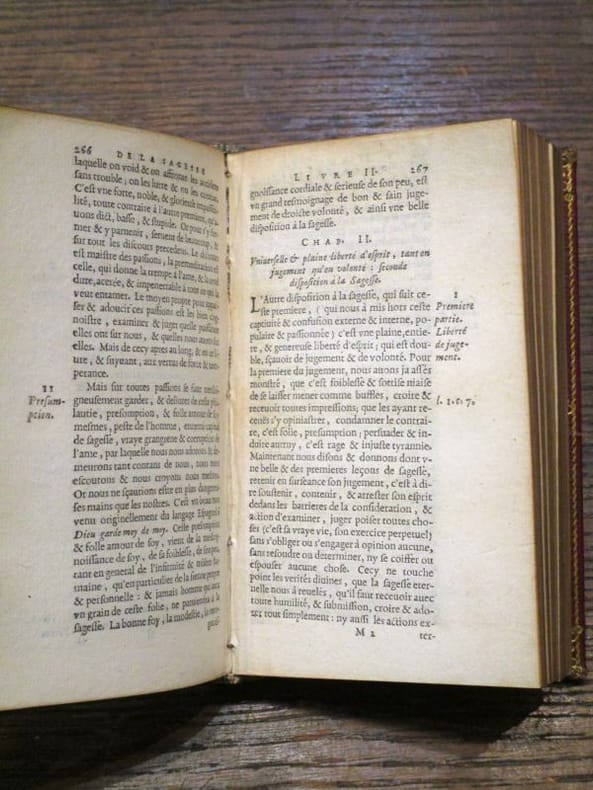 266 DE LA SAGESSE
laquelle on void & on affronte les accidens
sans trouble; on les lutte & on les combat.
C'est vne forte, noble, & glorieuse impassibi-
lité, toute contraire à l'autre premiere, qu'a-
uons dict, basse, & stupide. Or pour s'y for-
mer & y paruenir, seruent de beaucoup, &
sur tout les discours precedens. Le discours
est maistre des passions, la premeditation est
celle, qui donne la trempe à l'ame, & la rend
dure, acerée, & impenetrable à tout ce qui la
veut entamer. Le moyen propre pour appai-
ser & adoucir ces passions est les bien co-
noistre, examiner & juger quelle puissance
elles ont sur nous, & quelle nous auons sur
elles. Mais de cecy apres au long, & en ce li-
ure, & suyuant, aux vertus de force & tem-
perance.
11
Presum-
ption.
Mais sur toutes passions se faut tresloi-
gneusement garder, & deliurer de cette phi-
lautie, presomption, & folle amour de soy
mesmes, peste de l'homme, ennemi capital
de sagesse, vraye gangrene & corruption de
l'ame, par laquelle nous nous adorons & de-
meurons tant contens de nous, nous nous
escoutons & nous croyons nous mesmes.
Or nous ne sçaurions estre en plus dangereu-
ses mains que les nostres. C'est vn beau mot
venu originellement du langage Espagnol ô
Dieu garde moy de moy. Celle presomption
& folle amour de soy, vient de la mesco-
noissance de soy, de sa foiblesse, de son peu,
tant en general de l'infirmité & misere hu-
maine, qu'en particulier de la sienne propre
& personnelle: & jamais homme qui aura
vn grain de ceste folie, ne paruiendra à la
sagesse. La bonne foy, la modestie, la reco-
gnois-
LIVRE II. 267
gnoissance cordiale & serieuse de son peu, est
vn grand tesmoignage de bon & sain juge-
ment de droicte volonté, & ainsy vne belle
disposition à la sagesse.
CHAP. II.
Vniuerselle & plaine liberté d'esprit, tant en
jugement qu'en volonté: seconde
disposition à la Sagesse.
L'Autre disposition à la sagesse, qui suit ce-
ste premiere, (qui nous a mis hors ceste
captiuité & confusion externe & interne, po-
pulaire & passionnée) c'est vne plaine, entie-
re, & genereuse liberté d'esprit; qui est dou-
ble, sçauoir de jugement & de volonté. Pour
la premiere du jugement, nous auons ja assés
monstré, que c'est foiblesse & sottise niaise
de se laisser mener comme buffles, croire &
receuoir toutes impressions; que les ayant re-
ceuës s'y opiniastrer, condamner le contrai-
re, c'est folie, presumption; persuader & in-
duire autruy, c'est rage & injuste tyrannie.
Maintenant nous disons & donnons dont v-
ne belle & des premieres leçons de sagesse,
retenir en surseance son jugement, c'est à di-
re soustenir, contenir, & arrester son esprit
dedans les barrieres de la consideration, &
action d'examiner, juger poiser toutes cho-
ses (c'est sa vraye vie, son exercice perpetuel)
sans s'obliger ou s'engager à opinion aucune,
sans resoudre ou determiner, ny se coiffer ou
espouser aucune chose. Cecy ne touche
point les verités diuines, que la sagesse eter-
nelle nous à reuelés, qu'il faut receuoir auec
toute humilité, & submission, croire & ado-
rer tout simplement: ny aussi les actions ex-
M 2 ter-
1
Premiere
partie.
Liberté
de juge-
ment.
l. 1. c. 7.